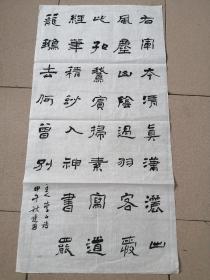 右軍本清真瀟灑出
風塵山陰過羽客愛
此好鵞賓掃素寫道
經筆精妙入神書罷
籠鵝去何曾別
主人李白詩
甲午秋